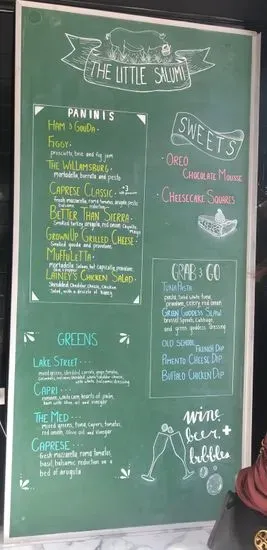 THE LITTLE SALUMI
PANINIS
HAM & GOUDA
FIGGY
prosciutto, brie and fig jam
THE WILLIAMSBURG
mortadella, burrata and pesto
CAPRESE CLASSIC
fresh mozzarella, roma tomatoes, arugula pesto
balsamic reduction
BETTER THAN SIERRA
Smoked turkey, arugula, red onion, chipotle
mayo
GROWNUP GRILLED CHEESE
Smoked gouda and provolone
MUFFULETTA
Mortadella, salami, hot capicolla, provolone,
LAINEY'S CHICKEN SALAD
Shredded Cheddar cheese, chicken
Salad, with a drizzle of honey
GREENS
LAKE STREET
mixed greens, shredded carrots, grape tomatoes,
with white balsamic dressing
CAPRI
romaine, white corn, hearts of palm,
olive oil and vinegar
THE MED
mixed greens, tuna, capers, tomatoes,
red onion, olive oil and vinegar
CAPRESE
fresh mozzarella, roma tomatoes,
basil, balsamic reduction on a
bed of arugula
SWEETS
· OREO
CHOCOLATE MOUSSE
· CHEESECAKE SQUARES
GRAB & GO
TUNA PASTA
pasta, solid white tuna,
provolone, celery, red onion
GREEN GODDESS SLAW
brussel sprouts, cabbage,
and green goddess dressing
OLD SCHOOL
FRENCH DIP
PIMENTO CHEESE DIP
BUFFALO CHICKEN DIP
wine
beer, +
bubbles